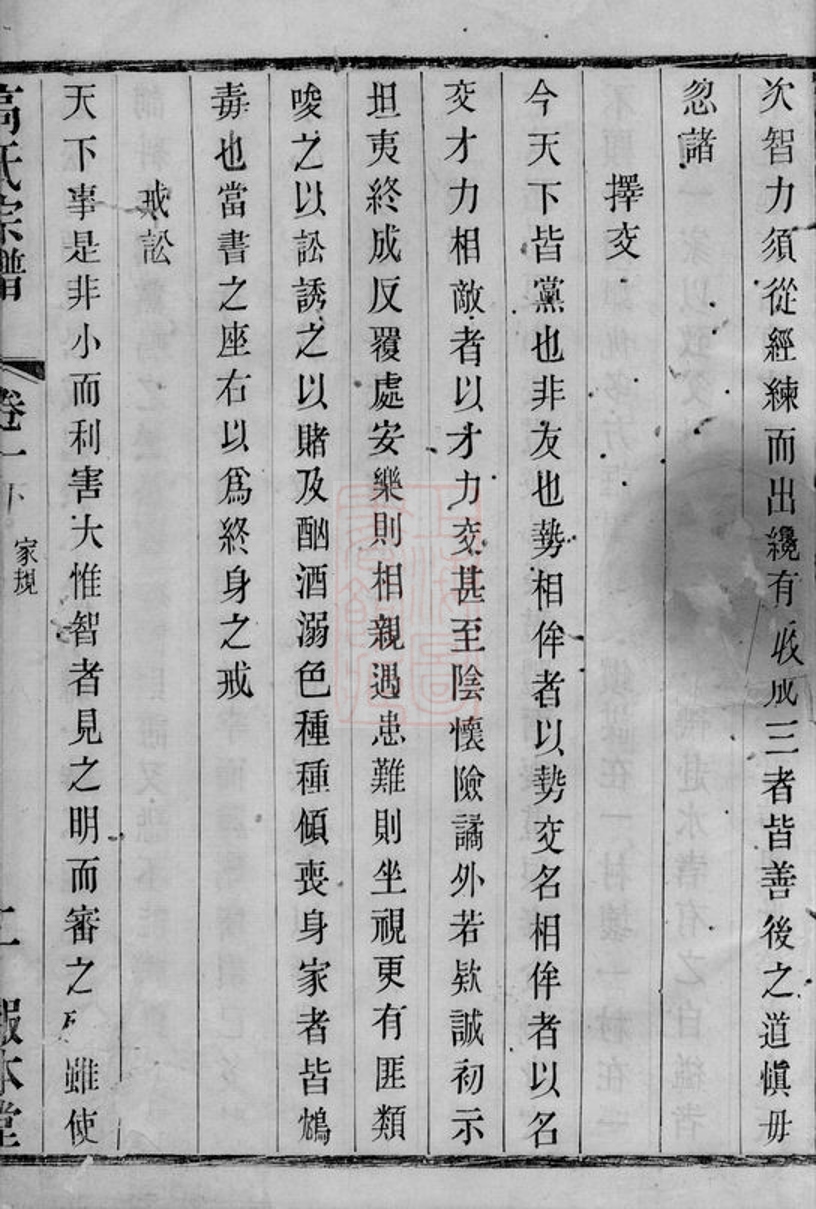 次智力須從經練而出纔有收成三者皆善後之道愼毋
忽諸
擇交
今天下皆黨也非友也勢相侔者以勢交名相侔者以名
交才力相敵者以才力交甚至陰懷險譎外若欵誠初示
坦夷終成反覆處安樂則相親遇患難則坐視更有匪類
唆之以訟誘之以賭及酗酒溺色種種傾喪身家者皆鴆
毒也當書之座右以爲終身之戒
戒訟
天下事是非小而利害大惟智者見之明而審之雖使
高氏宗譜 卷一下 家規 二 報本堂